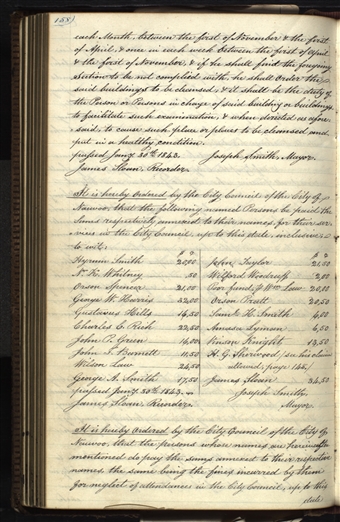 158)
each Month, between the first of November & the first
of April, & once in each week between the first of April
& the first of November, & if he shall find the foregoing
Section to be not complied with, he shall order the
said buildings to be cleansed, & it shall be the duty of
the Person or Persons in charge of said building or buildings,
to facilitate such examination, & when directed as afore-
said, to cause such place or places to be cleansed and
put in a healthy condition.
passed Jany. 30th 1843. Joseph Smith, Mayor.
James Sloan Recorder
It is hereby Ordered by the City Council of the City of
Nauvoo, that the following named Persons be paid the
Sums respectively annexed to their names for their ser-
vices in the City Council, up to this date, inclusive,
to wit:
Hyrum Smith 20,00 John Taylor 21,50
N. K. Whitney ,50 Wilford Woodruff 2,00
Orson Spencer 21,00 Wm Law 20,50
George W. Harris Orson Pratt 20,50
Gustavus Hills 14,50 Saml. H. Smith 4,00
Charles C. Rich 22,50 Amasa Lyman 6,50
John P. Green 16,00 Vinson Knight 13,50
John T. Barnett 11,50 H. G. Sherwood / see his claim
Wilson Law 24,50 allowed, page
George A. Smith 17,50 James Sloan 34,50
passed Jany. 30th 1843. Joseph Smith
James Sloan Recorder Mayor.
It is hereby Ordered by the City Council of the City of
Nauvoo, that the persons whose names are hereinafter
mentioned do pay the sums annexed to their respective
names, the same being the fines incurred by them
for neglect of attendance in the City Council, up to this
date